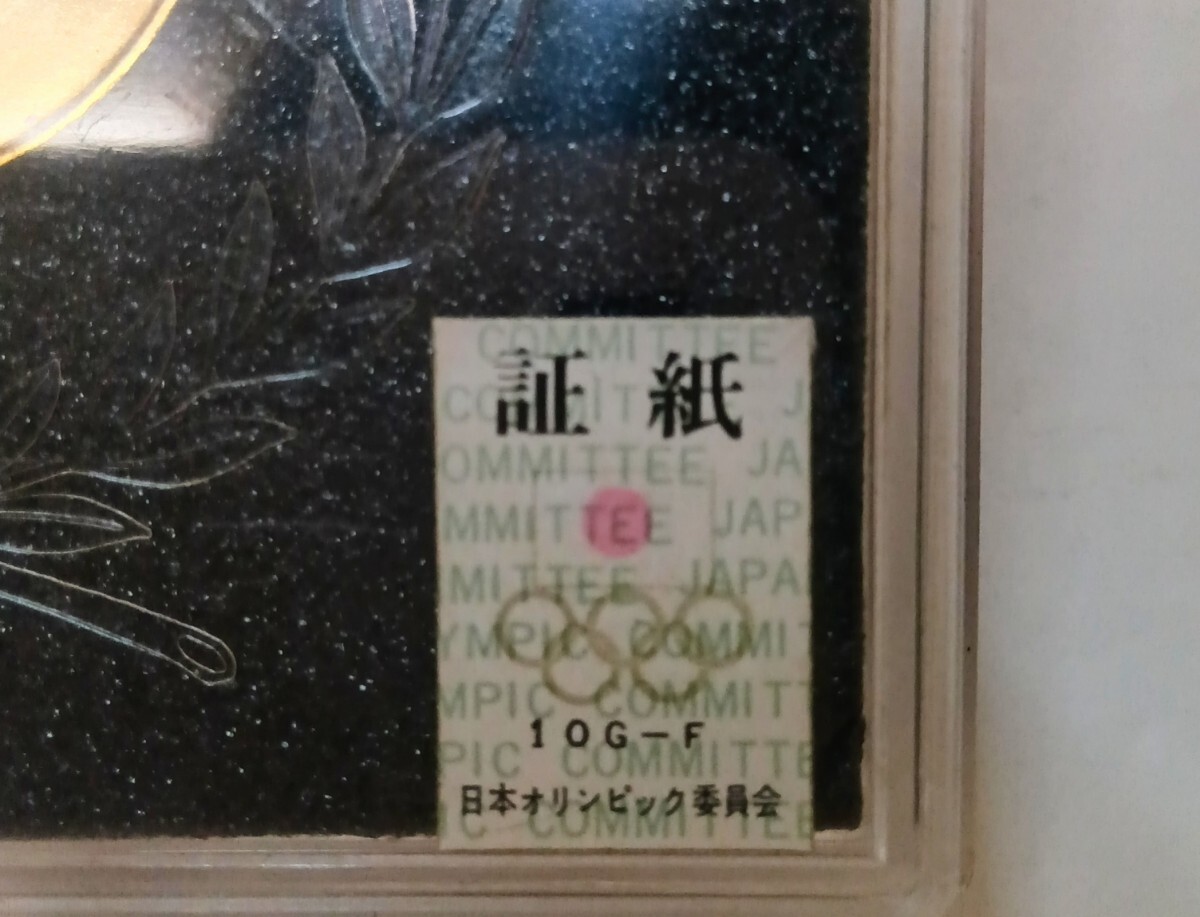 COMMITTEE
証紙
COMMIT J
OMMITTEE JA
MMITTEE JAP
MITTEE JAPA
YMPIC COMMIT
MPIC COMMITT
10G-F
PIC COMMITTE
日本オリンピック委員会
IC COMMITTEE